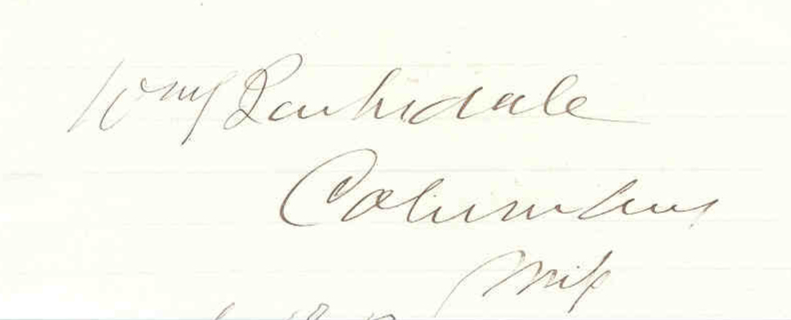 Wm Barksdale
Columbus
Miss